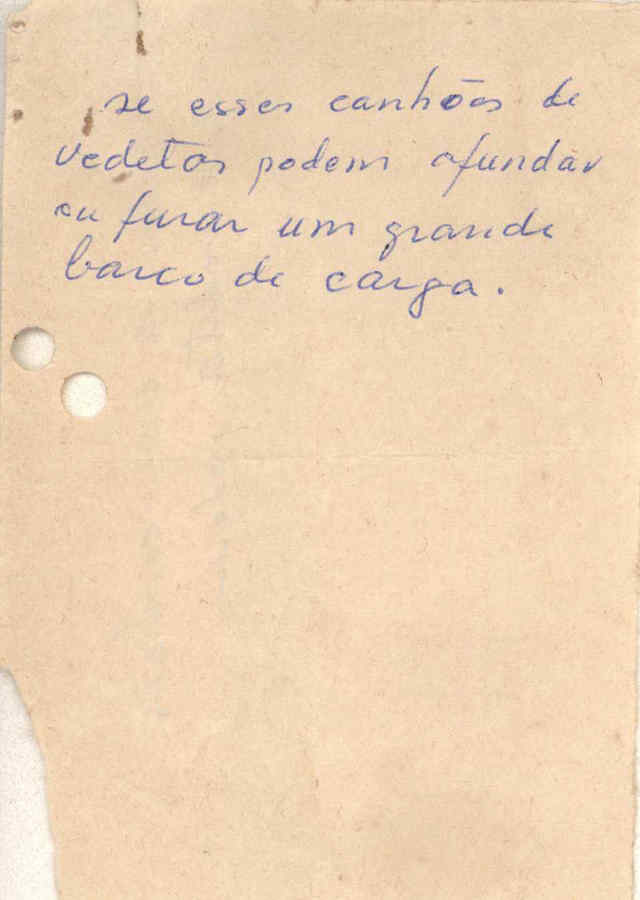 se esses canhões de
vedetas podem afundar
ou furar um grande
barco de carga.